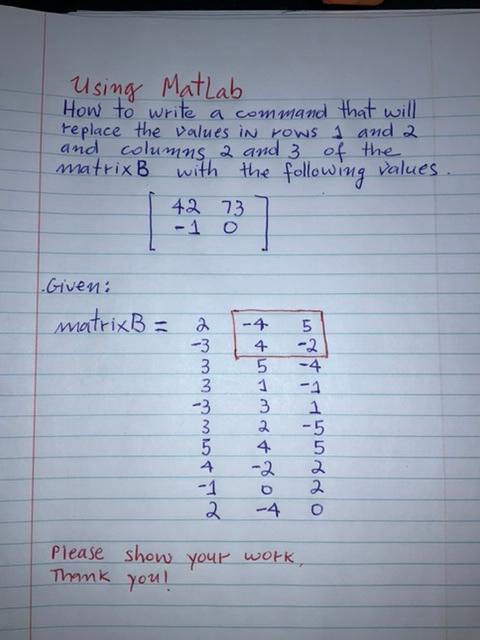 Using MatLab
How to write a command that will
replace the values in rows 1 and 2
and columns 2 and 3 of the
matrixB with the following values.
42 73
-1 0
Given:
matrixB = 2 -4 5
-3 4 -2
3 5 -4
3 1 -1
-3 3 1
3 2 -5
5 4 5
4 -2 2
-1 0 2
2 -4 0
Please show your work,
Thank you!